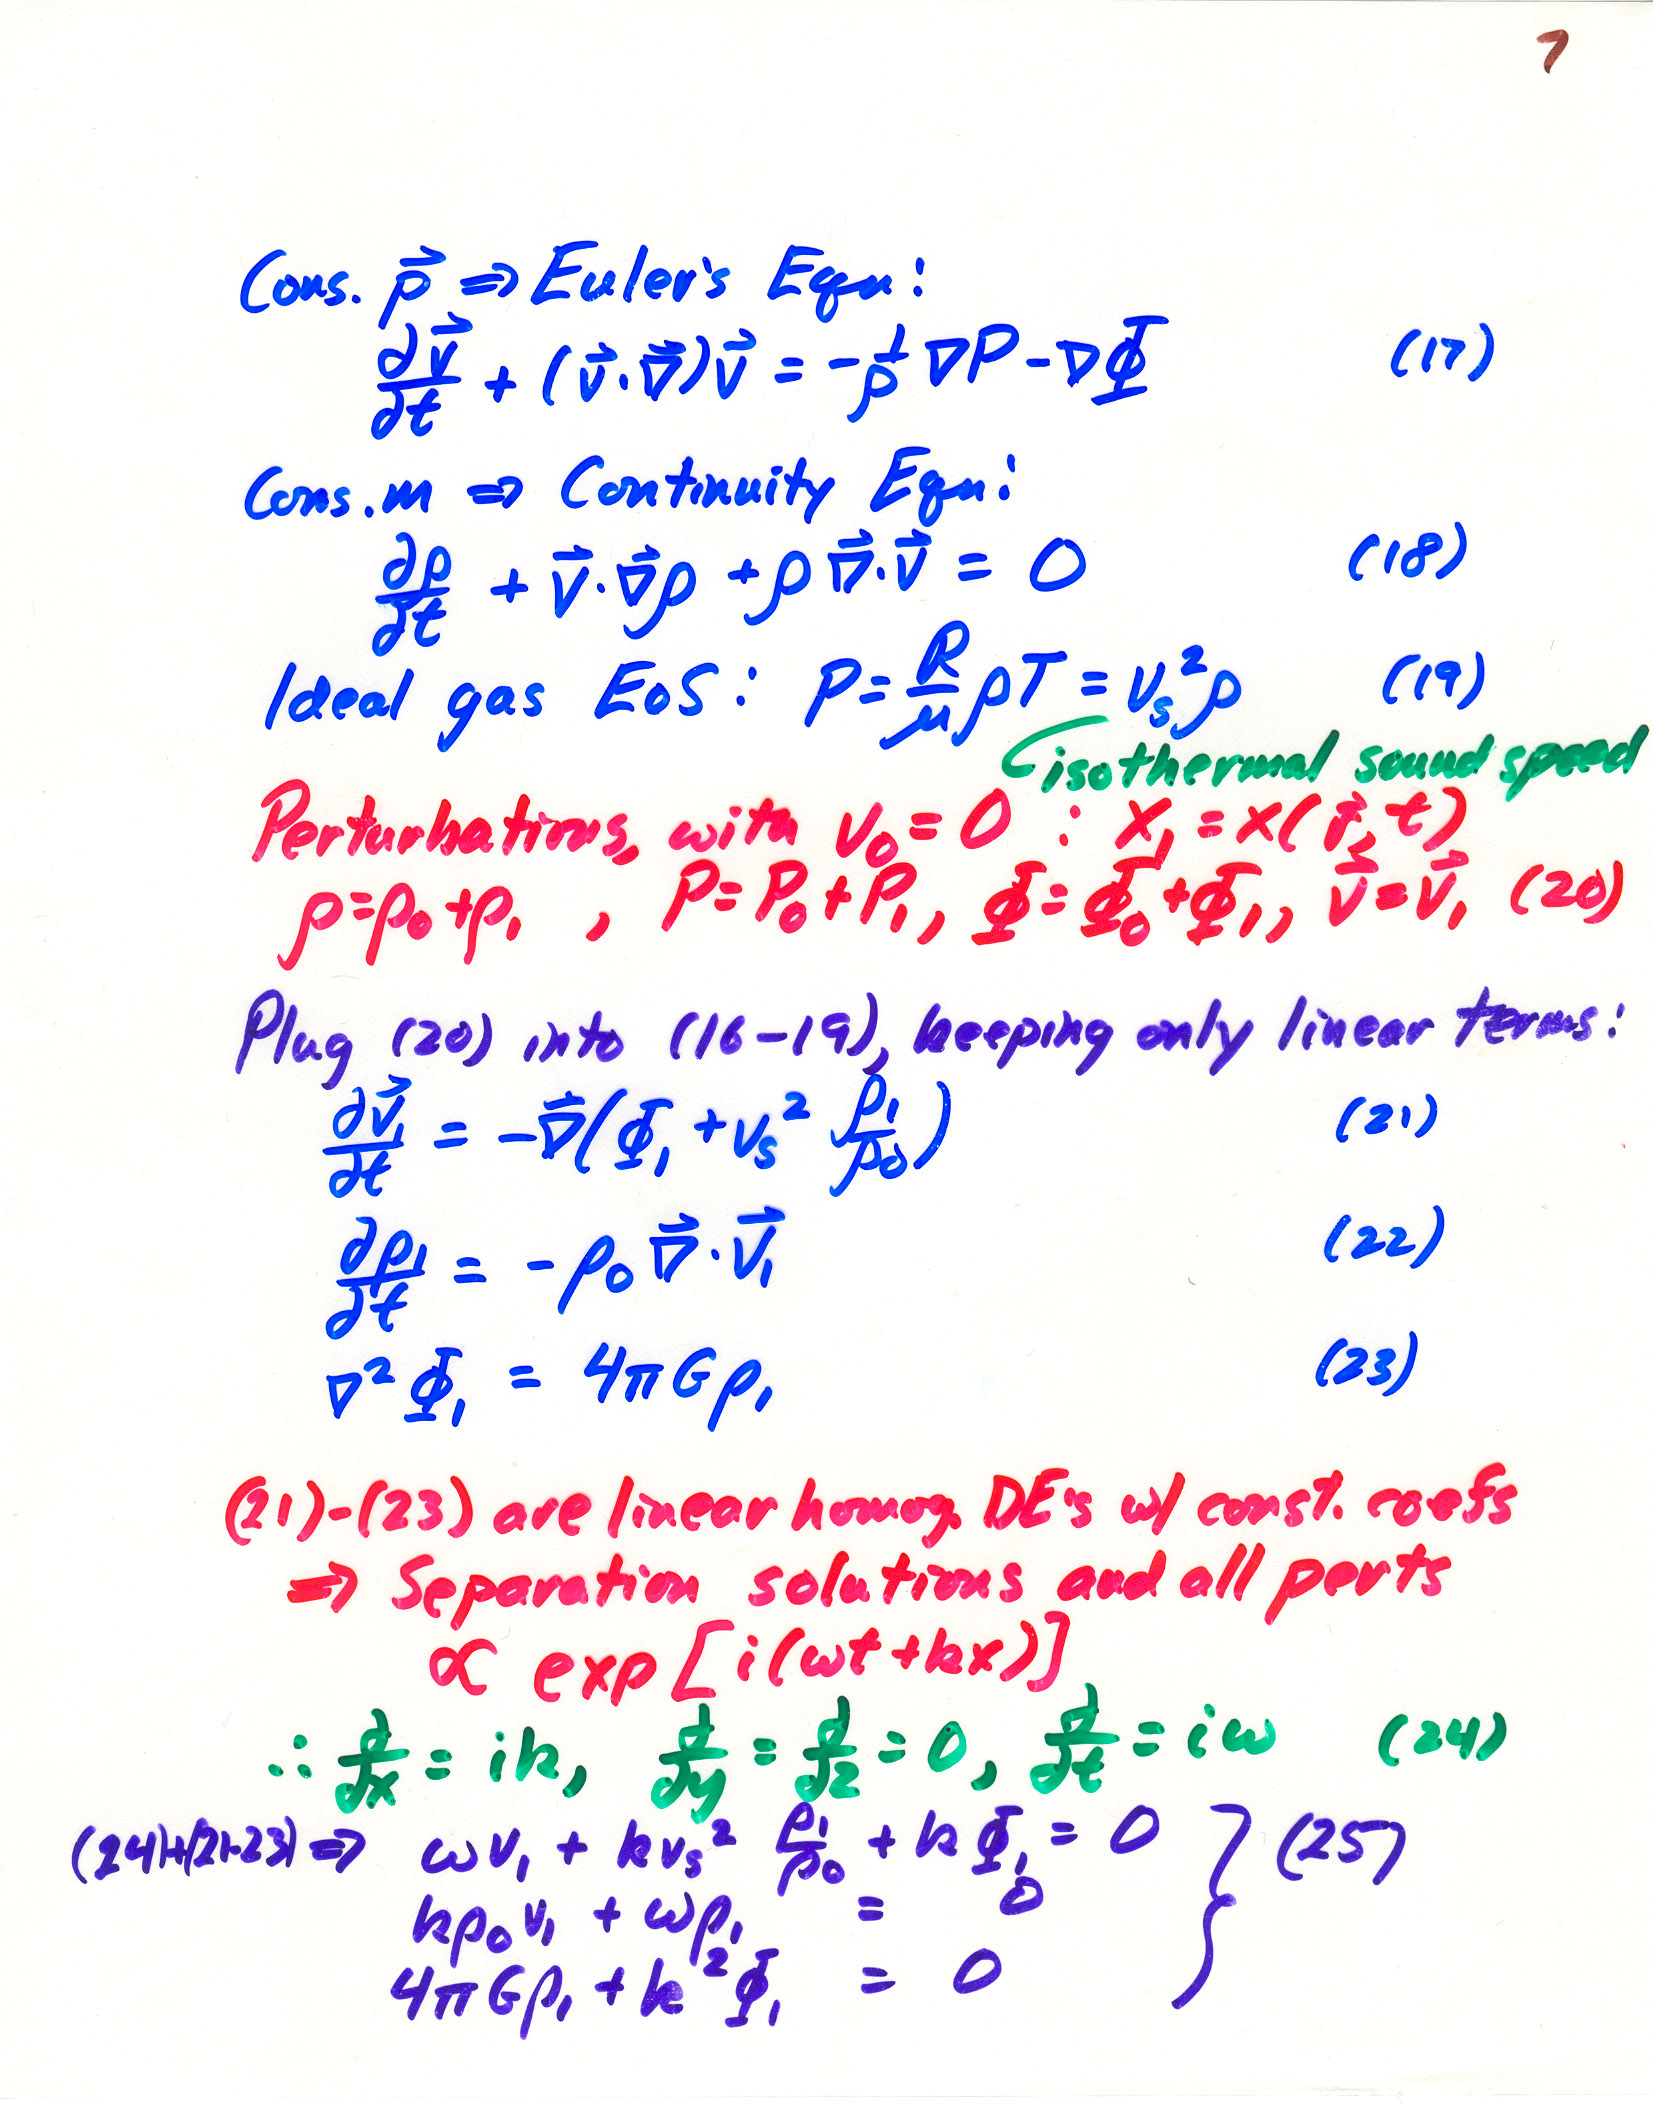 7
Cons. p⃗ ⇒ Euler's Eqn:
∂v⃗/∂t + (v⃗·∇⃗)v⃗ = -1/ρ ∇P - ∇Φ (17)
Cons. m ⇒ Continuity Eqn:
∂ρ/∂t + v⃗·∇⃗ρ + ρ∇⃗·v⃗ = 0 (18)
Ideal gas EoS: P = R/μ ρT = v_s²ρ (19)
isothermal sound speed
Perturbations, with v₀ = 0 : x₁ = x(r⃗, t)
ρ=ρ₀+ρ₁ , P=P₀+P₁, Φ=Φ₀+Φ₁, v⃗=v⃗₁ (20)
Plug (20) into (16-19), keeping only linear terms:
∂v⃗₁/∂t = -∇⃗(Φ₁ + v_s² ρ₁/ρ₀) (21)
∂ρ₁/∂t = -ρ₀ ∇⃗·v⃗₁ (22)
∇²Φ₁ = 4πGρ₁ (23)
(21)-(23) are linear homog. DE's w/ const. coefs
⇒ Separation solutions and all perts
∝ exp[i(ωt+kx)]
∴ ∂/∂x = ik, ∂/∂y = ∂/∂z = 0, ∂/∂t = iω (24)
(24)+(21-23) ⇒ ωv₁ + kv_s² ρ₁/ρ₀ + kΦ₁ = 0 } (25)
kρ₀v₁ + ωρ₁ = 0
4πGρ₁ + k²Φ₁ = 0